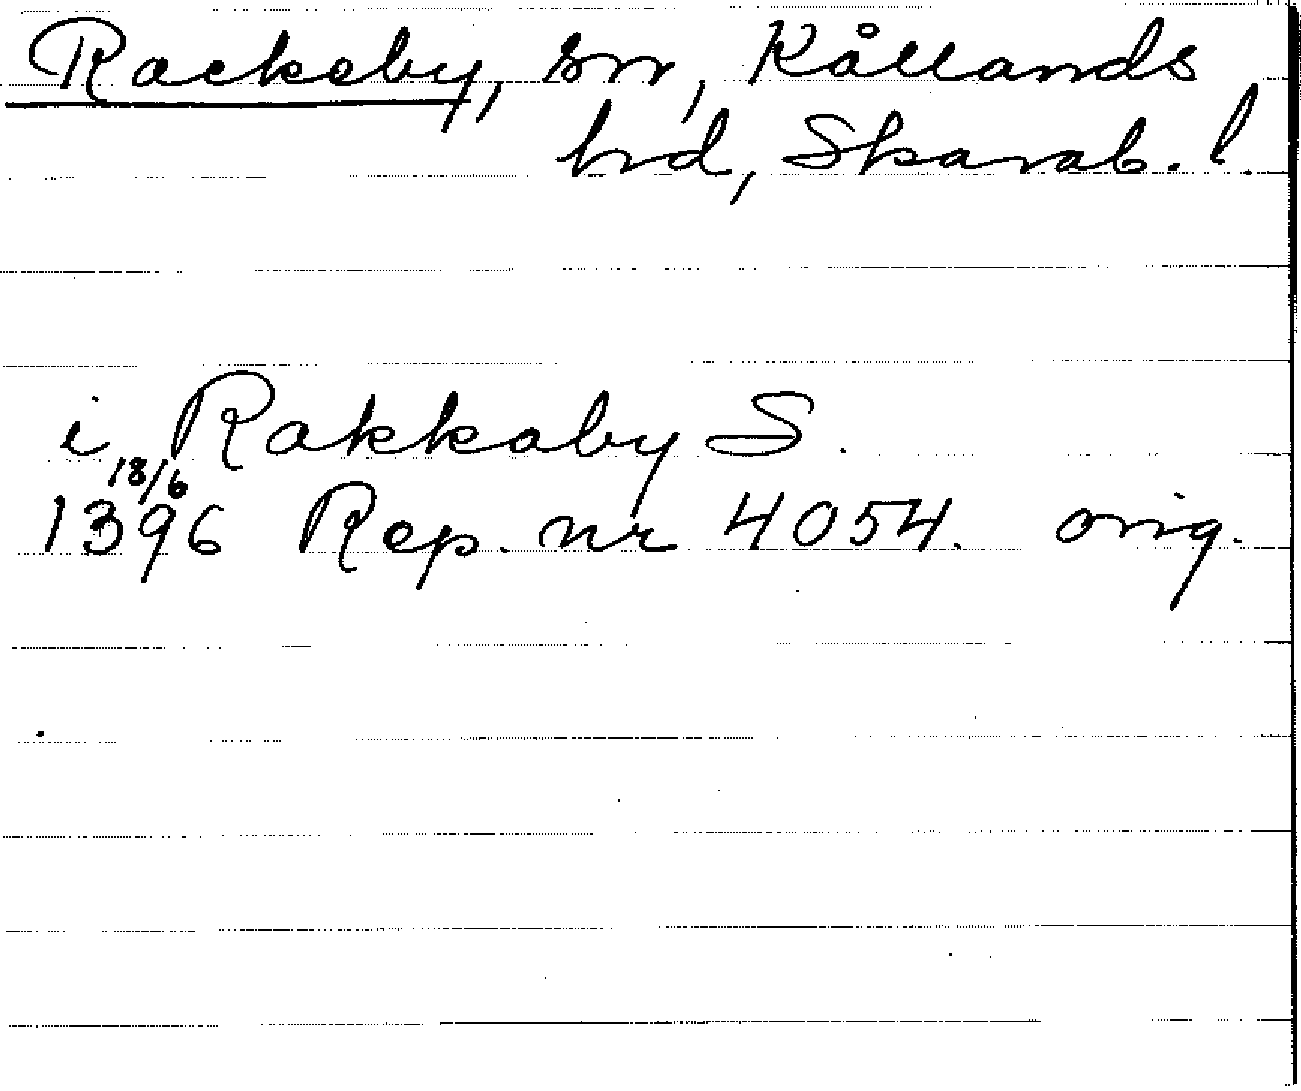 Rackeby, sn, Kållands
hd, Skarab. l.
i Rakkaby S.
18/6
1396 Rep. nr 4054. orig.